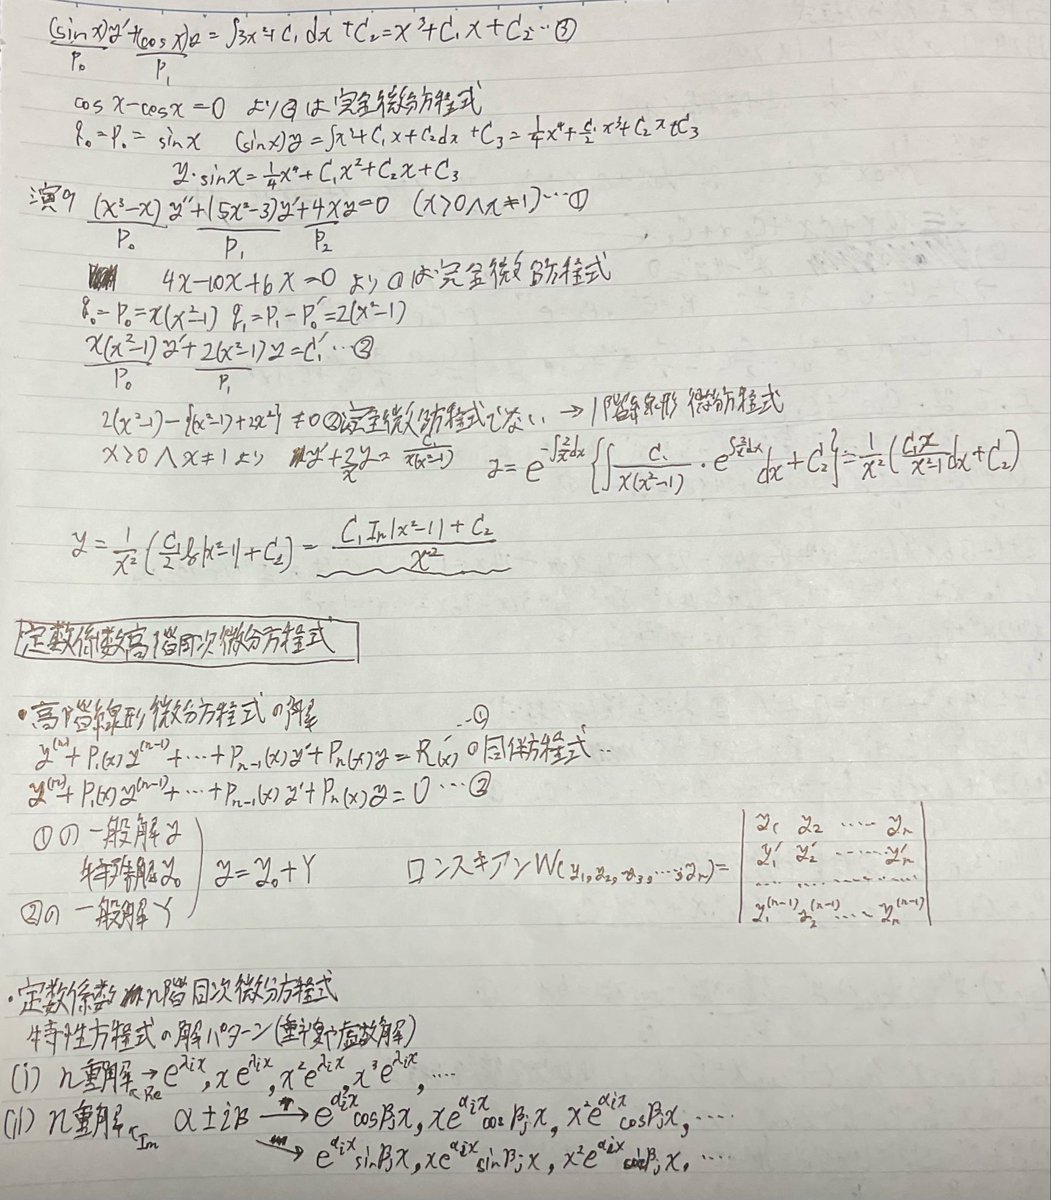 (sin x)y'+(cos x)y = ∫3x²+C₁dx+C₂ = x³+C₁x+C₂…③
P₀ P₁
cos x-cos x=0 より③は完全微分方程式
q₀=P₀=sin x (sin x)y=∫x³+C₁x+C₂dx+C₃=¼x⁴+C₁/2 x³+C₂x+C₃
y・sin x=¼x⁴+C₁x²+C₂x+C₃
演9 (x³-x)y''+(5x²-3)y'+4xy=0 (x>0∧x≠1)…①
P₀ P₁ P₂
4x-10x+6x=0 より①は完全微分方程式
q₀=P₀=x(x²-1) q₁=P₁-P₀'=2(x²-1)
x(x²-1)y'+2(x²-1)y=C₁'…②
P₀ P₁
2(x²-1)-{(x²-1)+2x²}≠0 ②は完全微分方程式でない →1階線形微分方程式
x>0∧x≠1より y'+2/x y=C₁/x(x²-1) y=e^{-∫2/x dx}{∫C₁/x(x²-1)・e^{∫2/x dx}dx+C₂}=1/x²(C₁x/x²-1 dx+C₂)
y=1/x²(C₁/2 log|x²-1|+C₂)=C₁ln|x²-1|+C₂/x²
定数係数高階同次微分方程式
・高階線形微分方程式の解
y⁽ⁿ⁾+P₁(x)y⁽ⁿ⁻¹⁾+…+Pₙ₋₁(x)y'+Pₙ(x)y=R(x)…① の同伴方程式…
y⁽ⁿ⁾+P₁(x)y⁽ⁿ⁻¹⁾+…+Pₙ₋₁(x)y'+Pₙ(x)y=0…②
①の一般解y
特殊解y₀
②の一般解Y
y=y₀+Y
ロンスキアンW(y₁,y₂,y₃,…,yₙ)=
y₁ y₂ ⋯ yₙ
y₁' y₂' ⋯ yₙ'
⋯⋯⋯⋯
y₁⁽ⁿ⁻¹⁾ y₂⁽ⁿ⁻¹⁾ ⋯ yₙ⁽ⁿ⁻¹⁾
・定数係数n階同次微分方程式
特性方程式の解パターン(重解や虚数解)
(i) n重解∈Re→e^{λᵢx}, xe^{λᵢx}, x²e^{λᵢx}, x³e^{λᵢx},…
(ii) n重解∈Im α±iβ → e^{αᵢx}cosβⱼx, xe^{αᵢx}cosβⱼx, x²e^{αᵢx}cosβⱼx,…
→ e^{αᵢx}sinβⱼx, xe^{αᵢx}sinβⱼx, x²e^{αᵢx}sinβⱼx,…